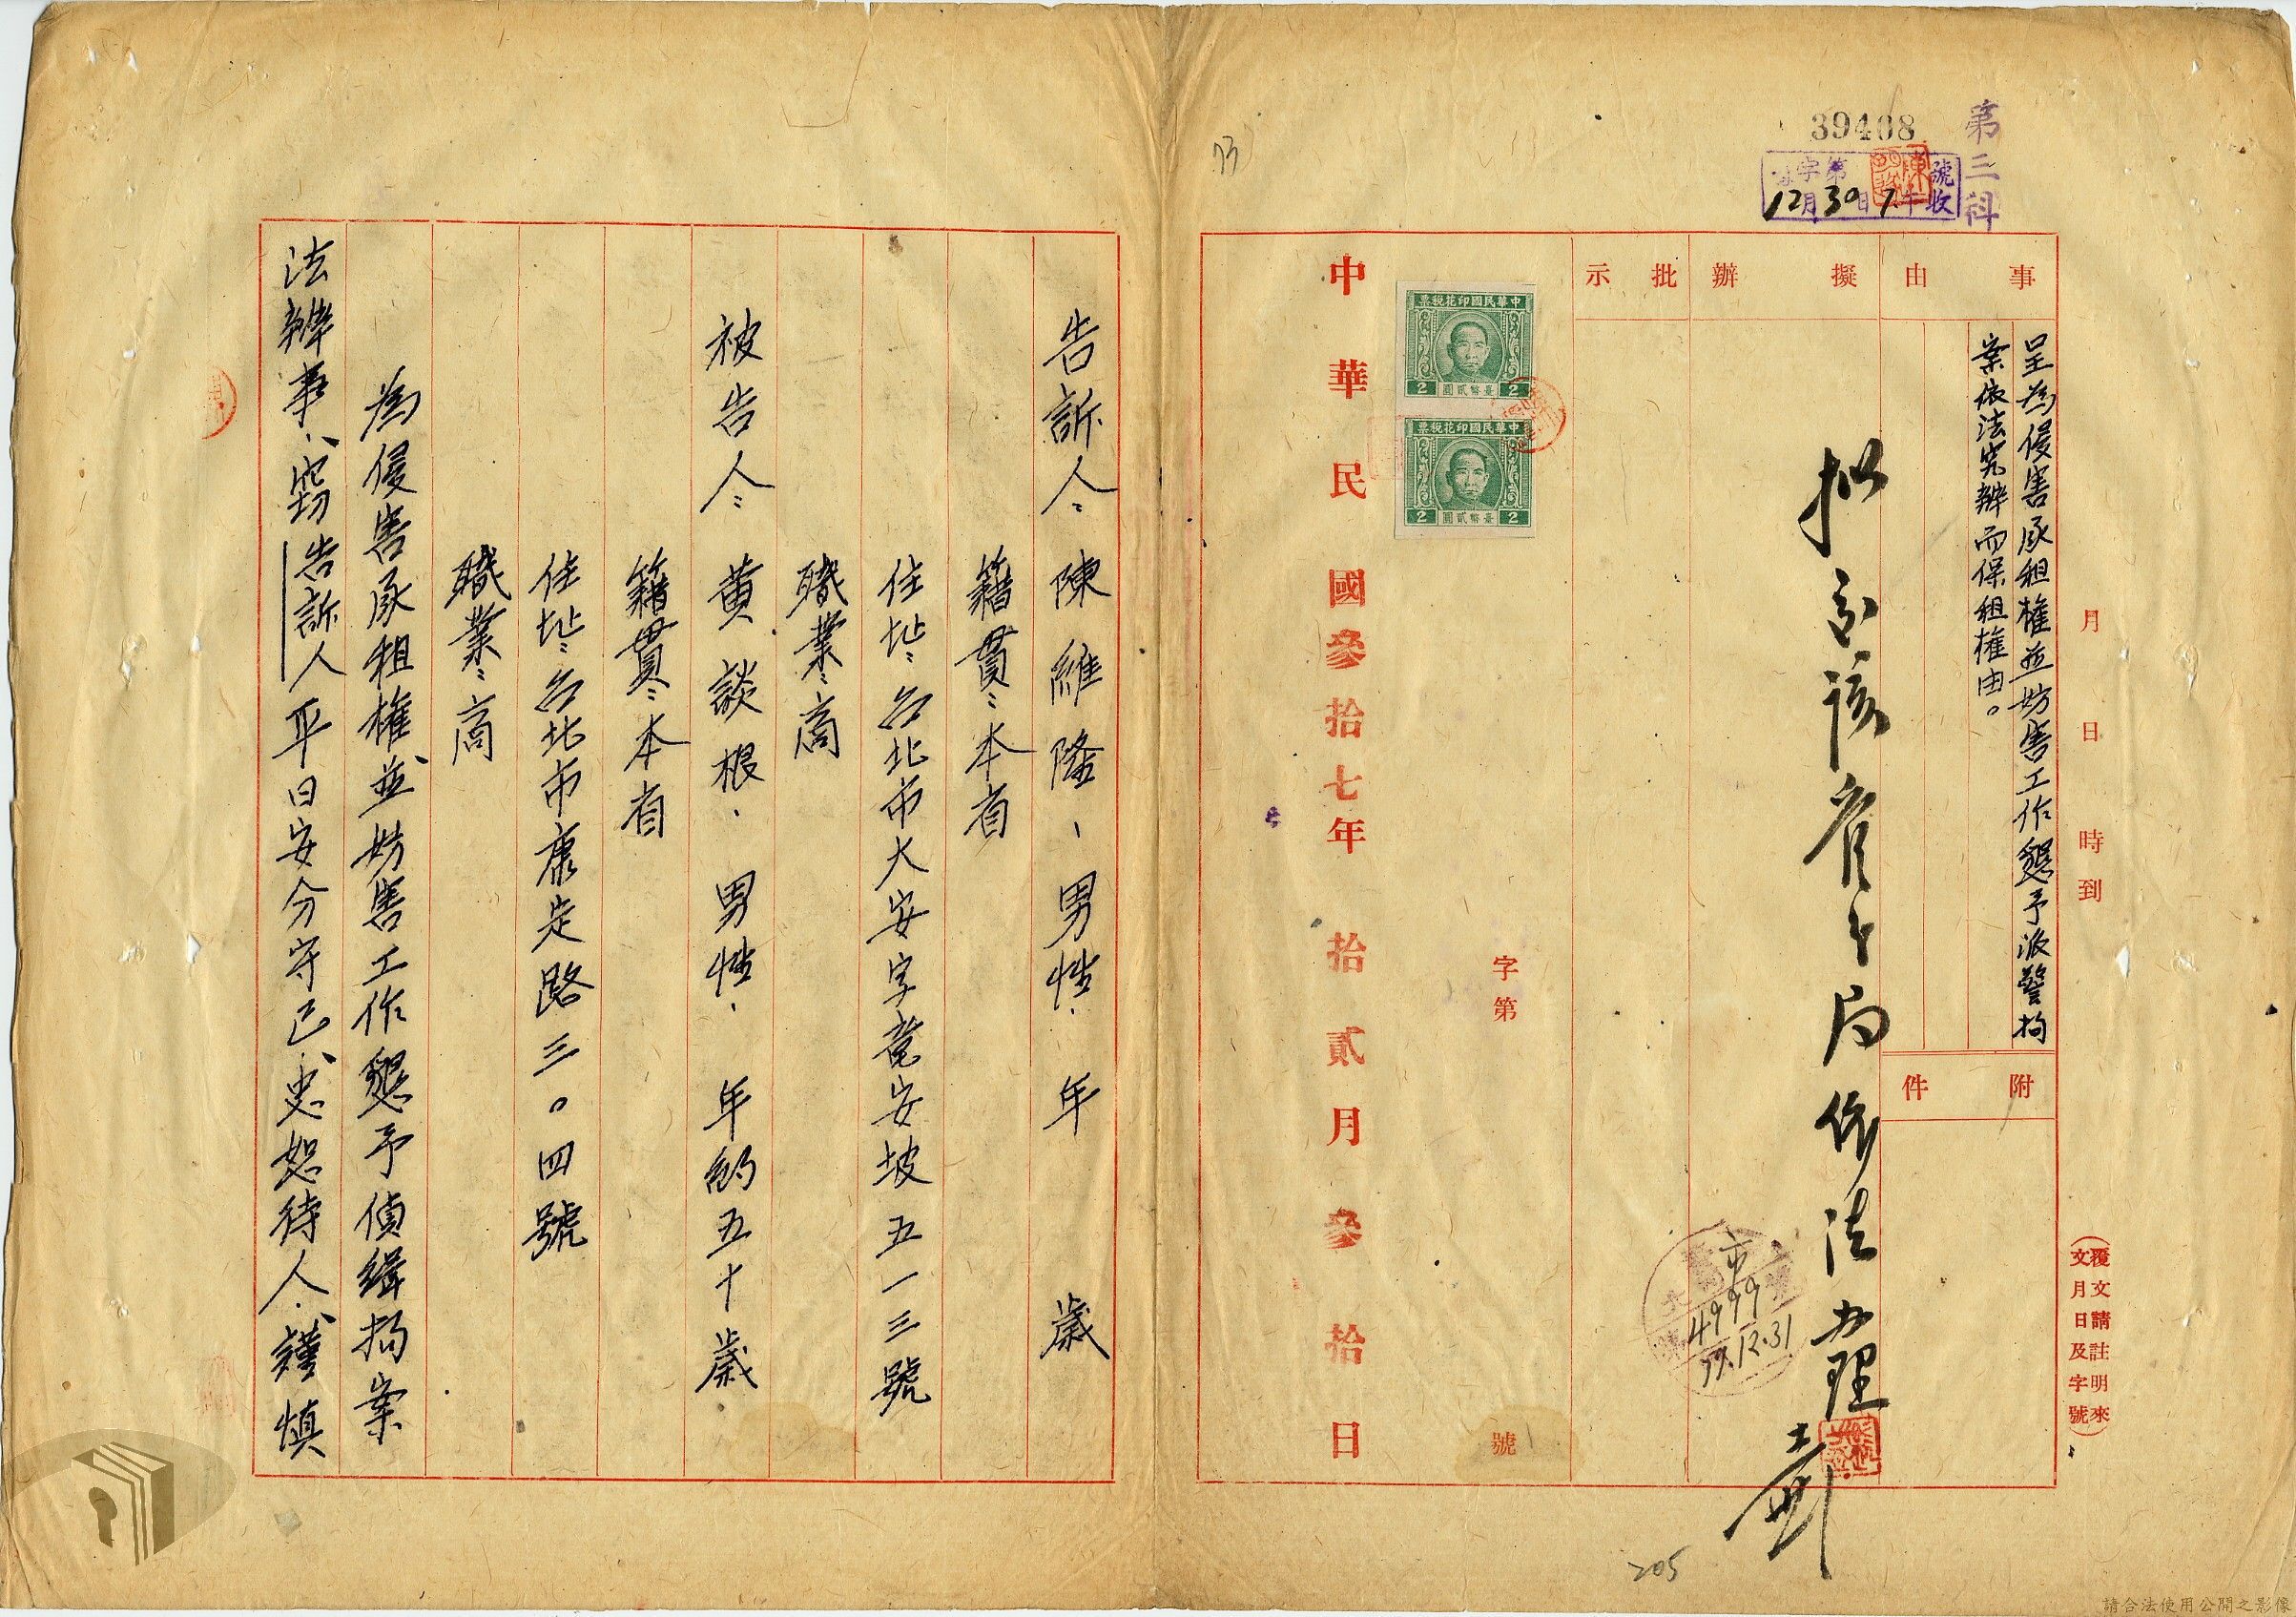 39408
第三科
字第 號收
12月30日 午
事由
擬辦
批示
附件
月 日 時到
呈為侵害承租權並妨害工作懇予派警拘
案依法究辦而保租權由。
分局依法办理
4999
37.12.31
字第 號
中華民國印花稅票
2 臺幣貳圓 2
中華民國印花稅票
2 臺幣貳圓 2
中華民國參拾七年拾貳月參拾日
(覆文請註明來
文月日及字號)
205
告訴人: 陳維隆、男性、年 歲
籍貫: 本省
住址: 台北市大安字竜安坡五一三號
職業: 商
被告人: 黃談根、男性、年約五十歲
籍貫: 本省
住址: 台北市康定路三〇四號
職業: 商
為侵害承租權、並妨害工作懇予偵緝拘案
法辦事、竊告訴人平日安分守己、忠恕待人、謹慎
請合法使用公開之影像